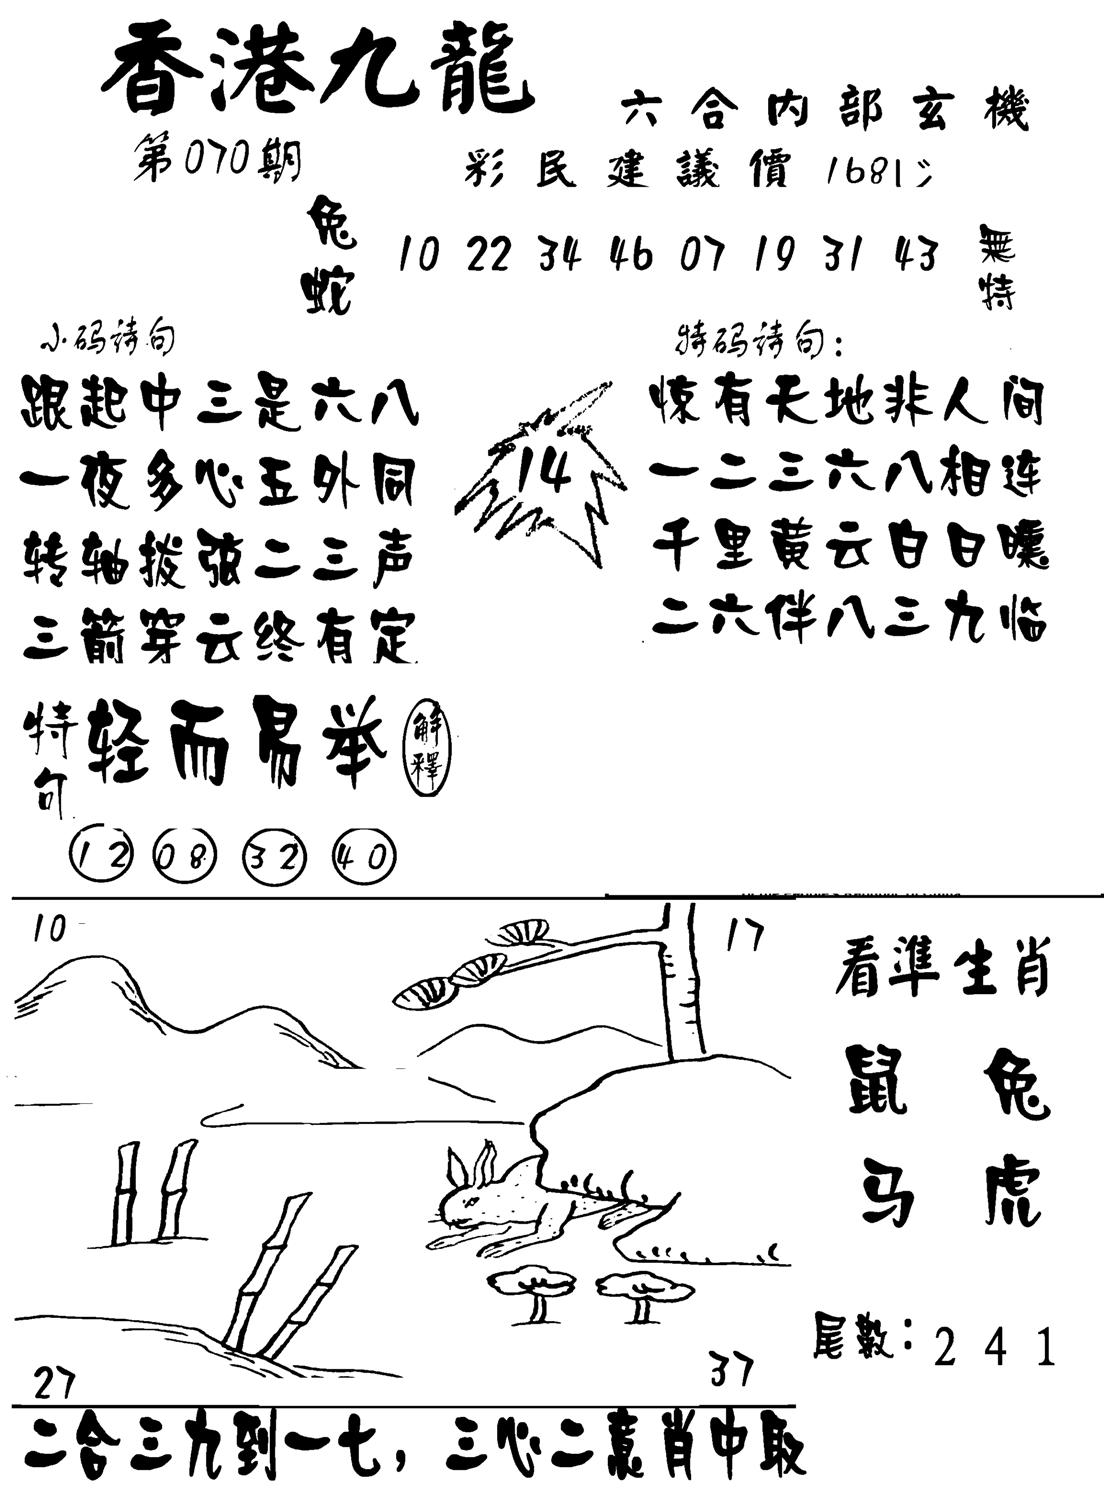 香港九龍
六合内部玄機
第070期
彩民建議價 1681
兔
蛇
10 22 34 46 07 19 31 43
無特
小码诗句
跟起中三是六八
一夜多心五外同
转轴拨弦二三声
三箭穿云终有定
14
特码诗句:
惊有天地非人间
一二三六八相连
千里黄云白日曛
二六伴八三九临
特句
轻而易举
解釋
12 08 32 40
10
17
27
37
看準生肖
鼠 兔
马 虎
尾數: 2 4 1
二合三九到一七，三心二意肖中取